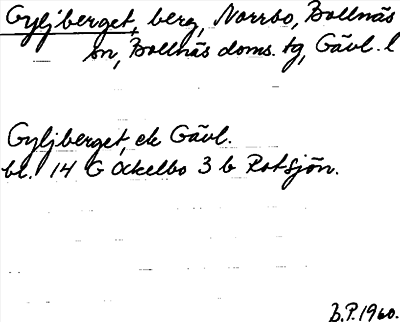 Gyljberget, berg, Norrbo, Bollnäs
sn, Bollnäs doms. tg, Gävl. l
Gyljberget, ek Gävl.
bl. 14 G Ockelbo 3 b Rotsjön.
B.P. 1960.